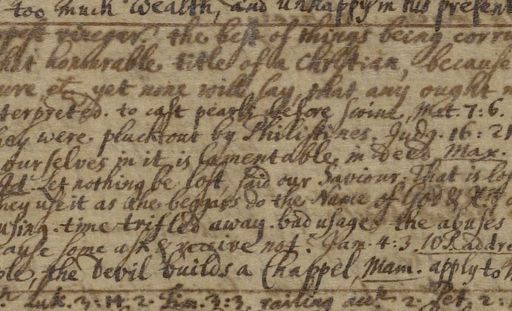 too much wealth, and unhappy in his present
vinegar, the best of things being corru
honourable title of a Christian, because
yet none will say, that any ought n
terpreted. to cast pearls before swine, Mat. 7:6.
hey were pluckt out by Philistines. Judg. 16:21
ourselves in it, is lamentable indeed Max.
Let nothing be lost, said our Saviour. That is los
hey use it as the beggars do the Name of God &
using. time trifled away. bad usage the abuses
cause some ask & receive not. Jam. 4:3.
ple, the Devil builds a Chappel, Mam. apply to
Luk. 3:14. 2. Tim. 3:3, railing 2. Pet. 2: